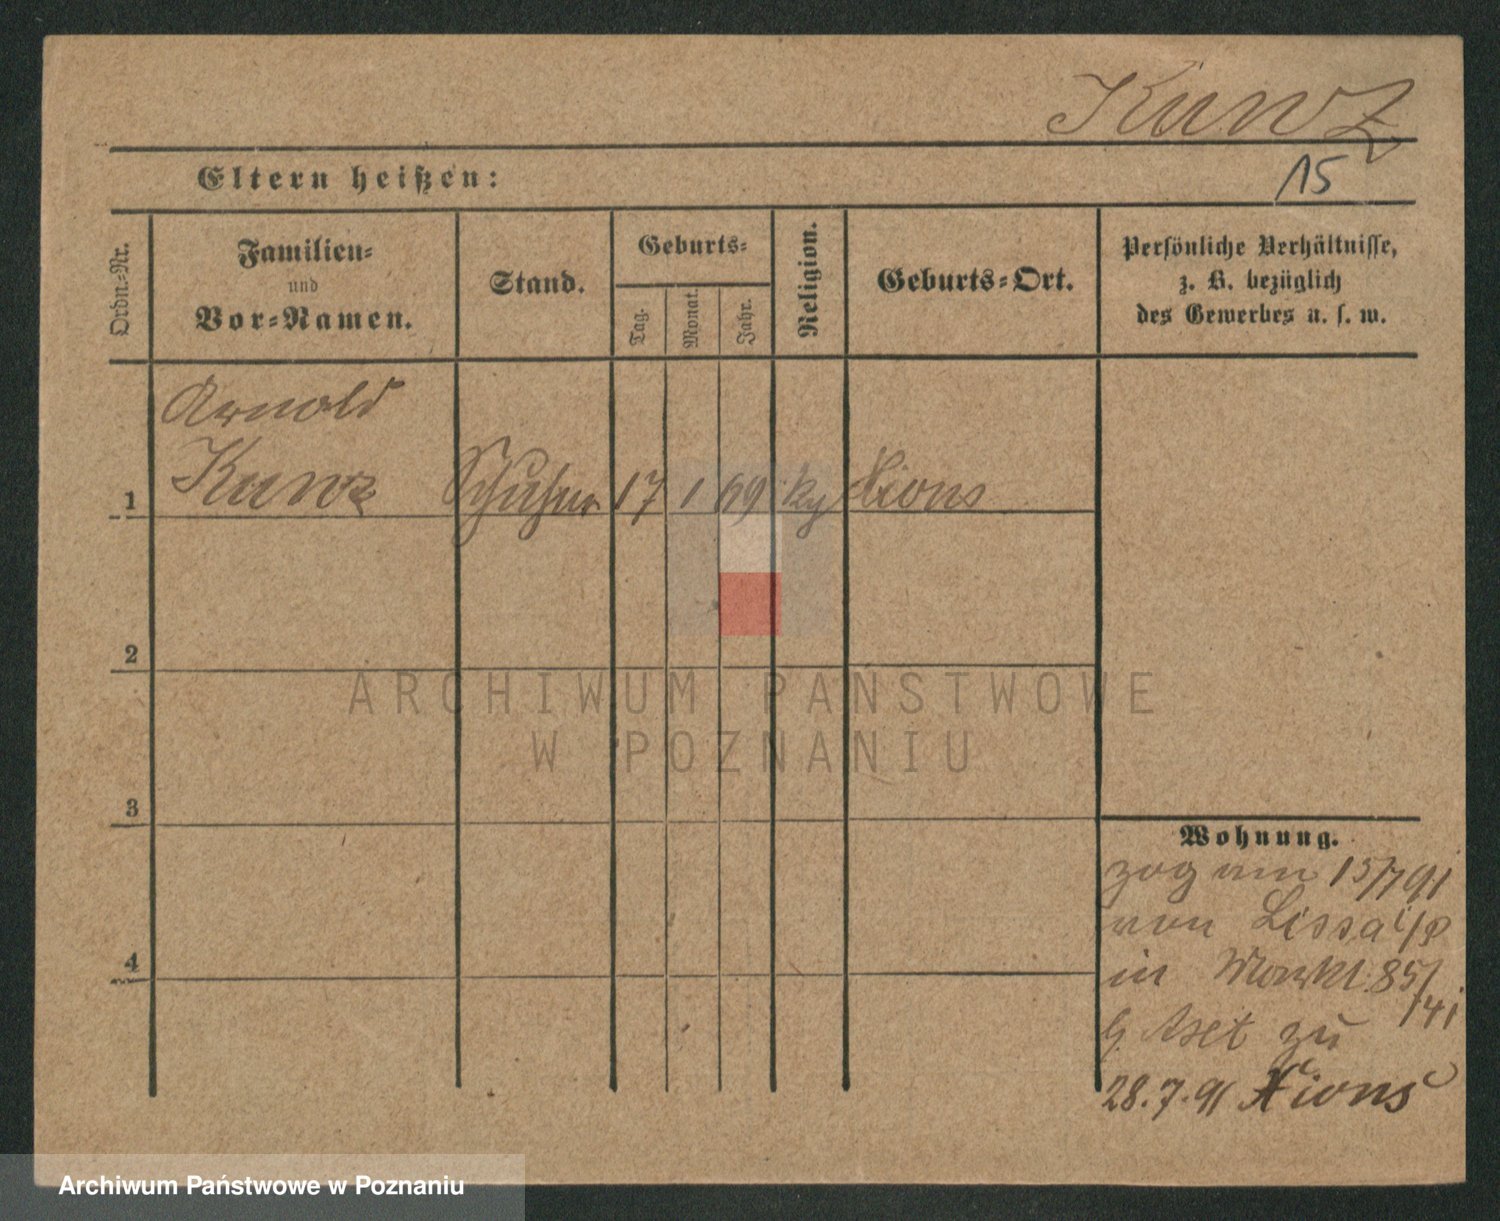 Kunz
15
Eltern heißen:
Ordn.-Nr.
Familien-
und
Vor-Namen.
Stand.
Geburts-
Tag.
Monat.
Jahr.
Religion.
Geburts-Ort.
Persönliche Verhältnisse,
z. B. bezüglich
des Gewerbes u. s. w.
Arnold
1 Kunz 17 1 69 Xions
2
ARCHIWUM PAŃSTWOWE
W POZNANIU
3
Wohnung.
zog am 15/7 91
von Lissa i/P
4
in Markt 85/
zu
28.7.91 Xions
Archiwum Państwowe w Poznaniu